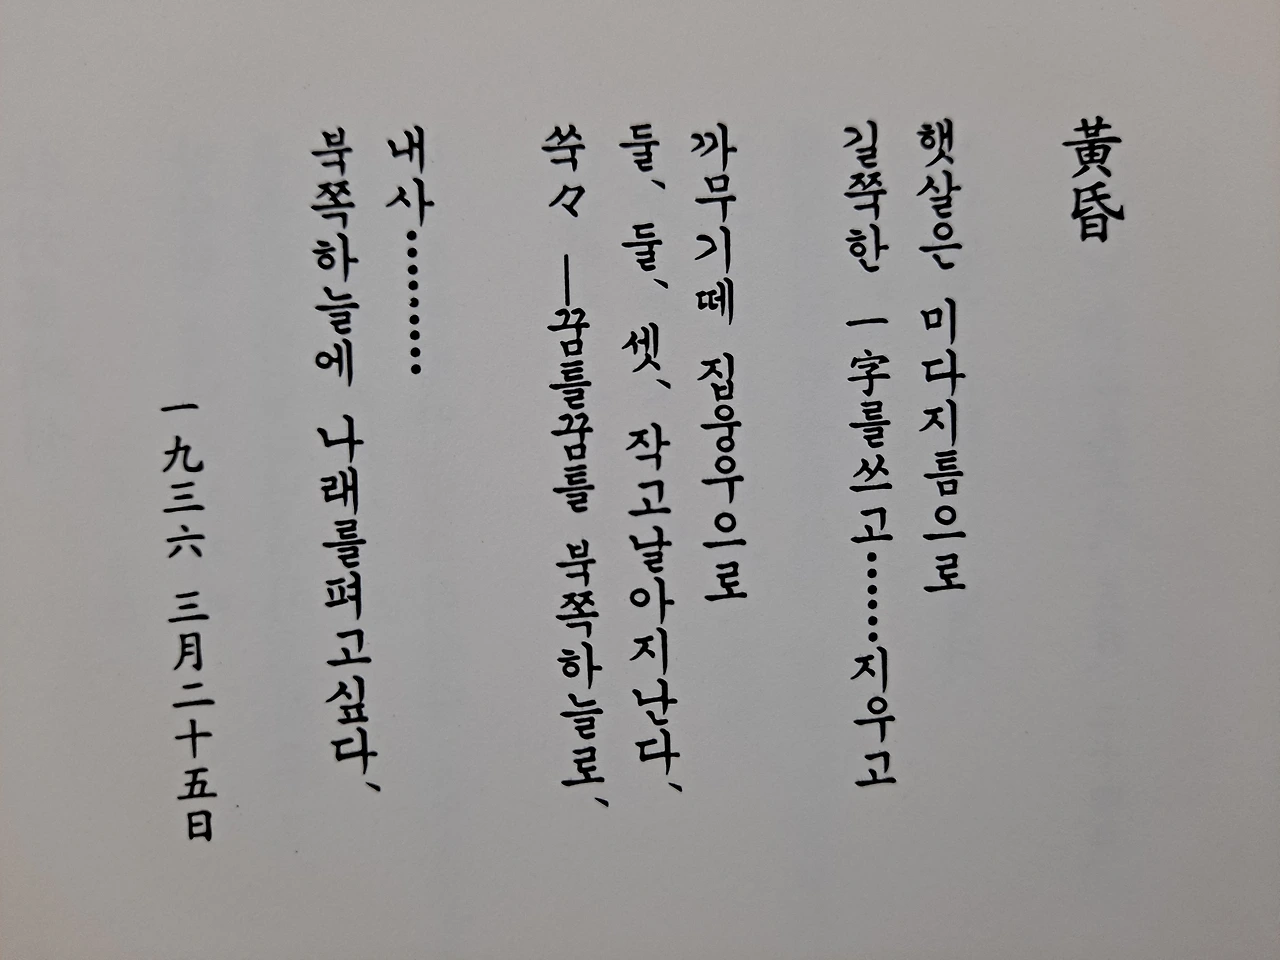 黃昏
햇살은 미다지틈으로
길쭉한 一字를쓰고⋯⋯지우고
까무기떼 집웅우으로
둘、둘、셋、작고날아지난다、
쑥々 ―꿈틀꿈틀 북쪽하늘로、
내사⋯⋯⋯
북쪽하늘에 나래를펴고싶다、
一九三六 三月二十五日